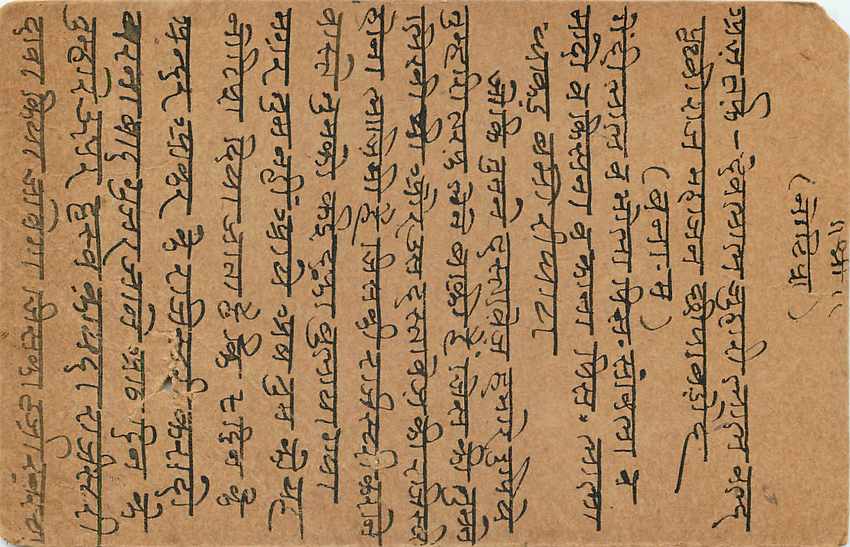 ॥ श्री ॥
(नोटिस)
अज तर्फ - देवालाल जुहारी लाल वल्द
पृथ्वीराज महाजन छीपाबड़ोद
(बनाम)
नंदी लाल व भोला पिस. सांवला व
मादो व किसना व काना पिस. लाला
धाकड़ बमोरीघाटा
जोकि तुमने दस्तावेज हमारे रुपये
तुम्हारी तरफ लेने बाकी हैं जिस की तुमने
लिखी थी और उस दस्तावेज की रजिस्ट्री
होना लाजिमी है जिसकी रजिस्ट्री कराने
वास्ते तुमको कई दफा बुलाया गया
मगर तुम नहीं आये अब तुम को यह
नोटिस दिया जाता है कि टाइम के
अन्दर आकर के रजिस्ट्री करादो
वरना बाद गुजर जाने आठ दिन के
तुम्हारे उपर हस्ब कायदा रजिस्ट्री
दावा किया जावेगा जिसका हर्जा खर्चा